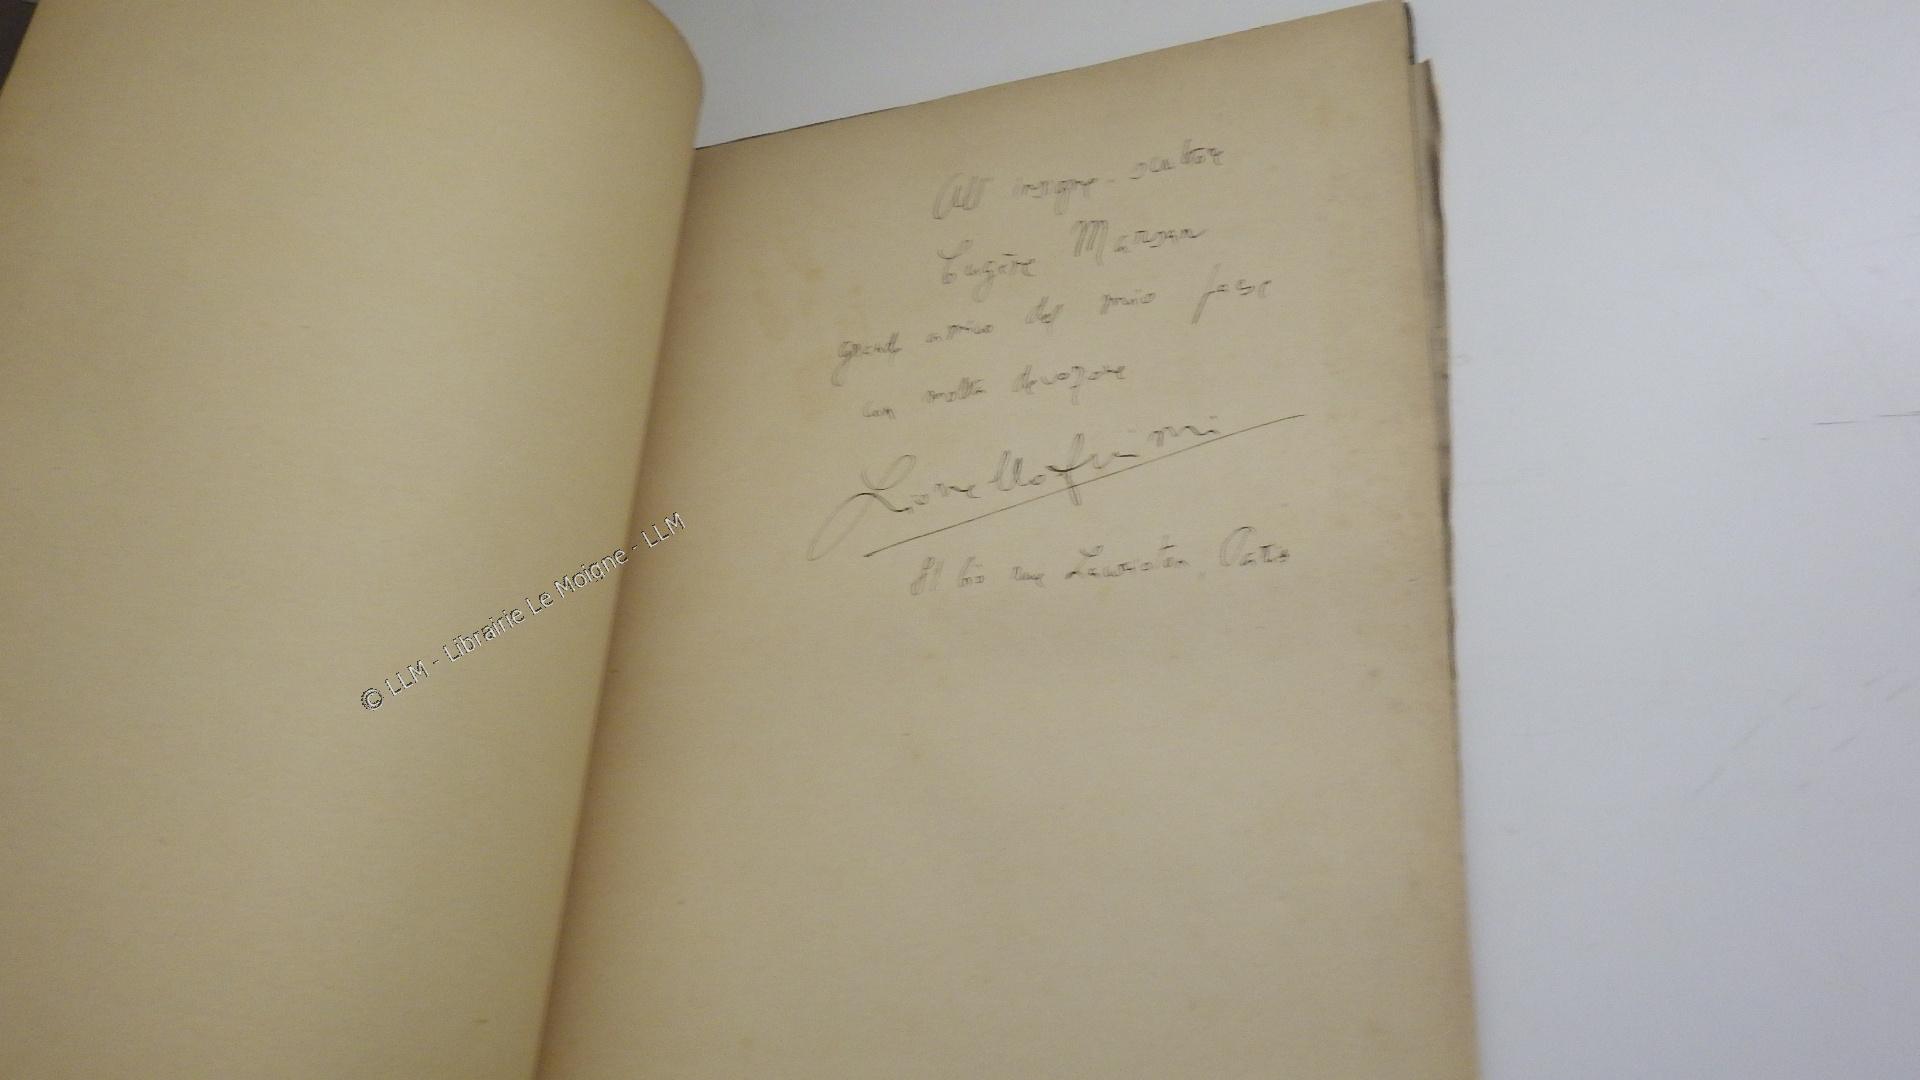 All insigne scrittore
Eugène Marsan
grande amico del mio paese
con molta devozione
Lionello Fiumi
81 bis rue Lauriston, Paris
© LLM - Librairie Le Moigne - LLM